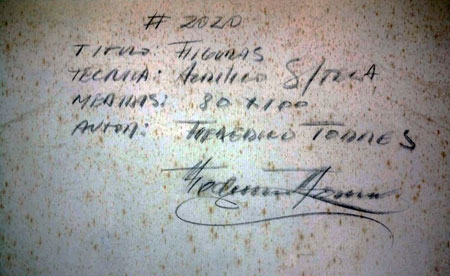 # 2020
TITULO: FIGURAS
TECNICA: Acrilico S/TELA
MEDIDAS: 80 X 100
AUTOR: FEDERICO TORRES